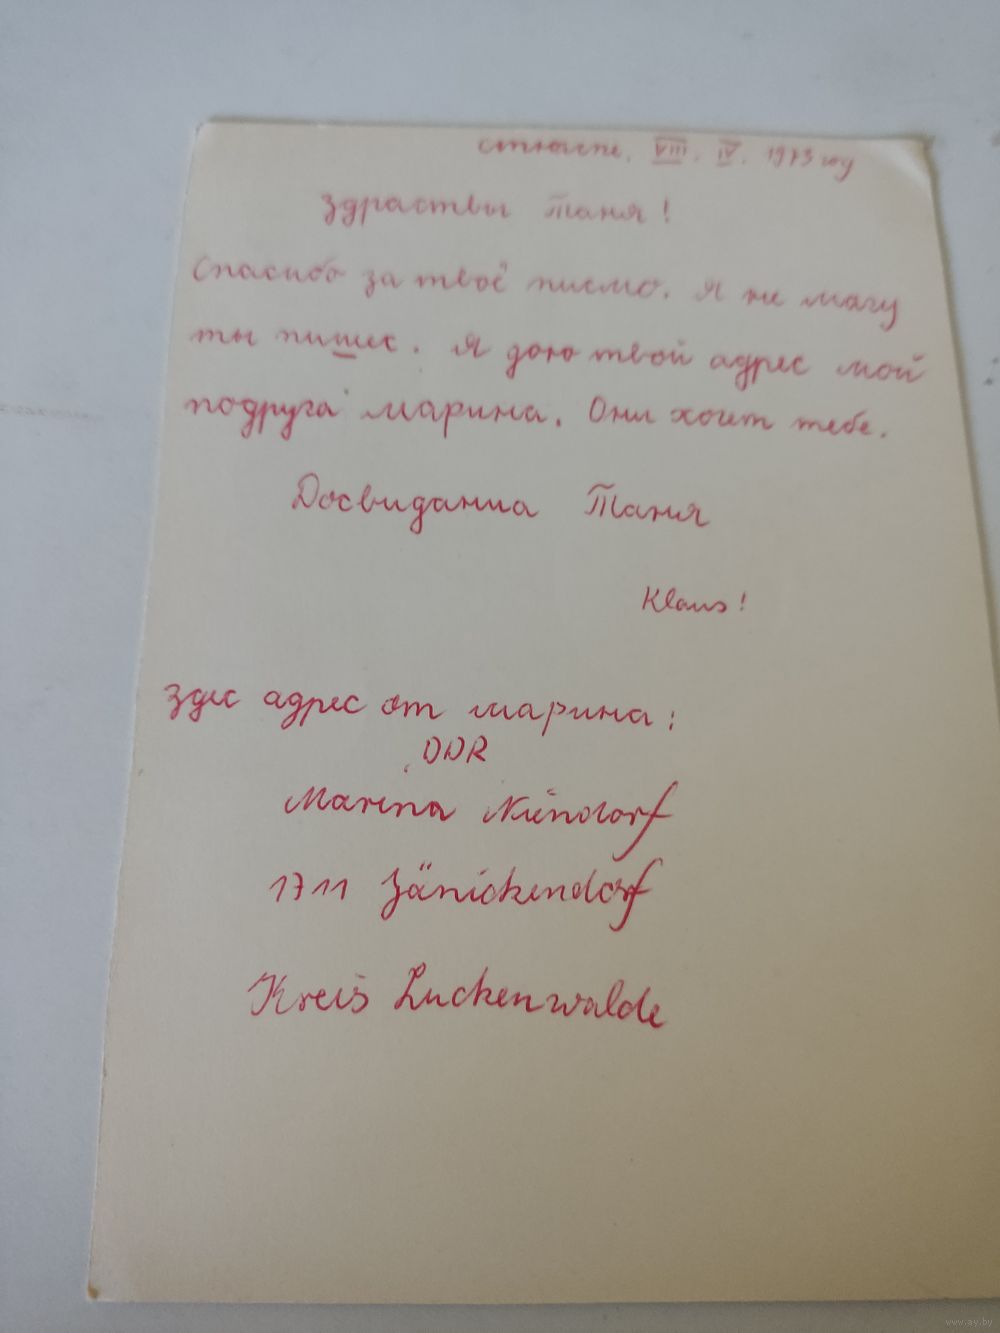 VIII. IV. 1973 году
здраствы Таня!
Спасибо за твоё писмо. Я не магу
ты пишес. Я дою твой адрес мой
подруга марина. Они хоит тебе.
Досвиданиа Таня
Klaus!
здес адрес от марина:
DDR
Marina Niendorf
1711 Jänickendorf
Kreis Luckenwalde
www.ay.by